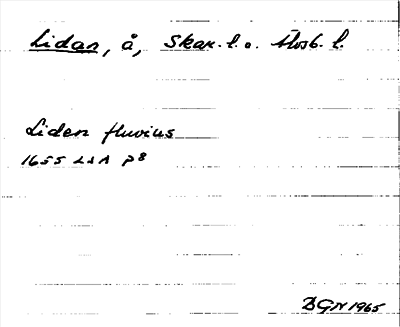 Lidan, å, Skar. l. o. Älvsb. l.
Liden fluvius
1655 LSA P8
BGN 1965